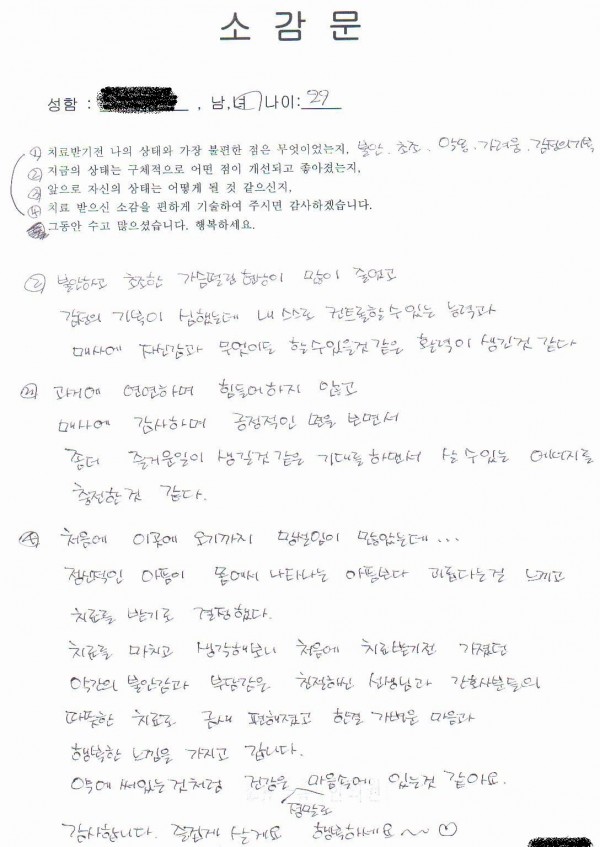 소 감 문
성함 : , 남,녀 나이: 29
① 치료받기전 나의 상태와 가장 불편한 점은 무엇이었는지, 불안. 초조. 악몽. 가려움. 감정의기복
② 지금의 상태는 구체적으로 어떤 점이 개선되고 좋아졌는지,
③ 앞으로 자신의 상태는 어떻게 될 것 같으신지,
④ 치료 받으신 소감을 편하게 기술하여 주시면 감사하겠습니다.
그동안 수고 많으셨습니다. 행복하세요.
② 불안하고 초조한 가슴떨린 현상이 많이 줄었고
감정의 기복이 심했는데 내 스스로 컨트롤할 수 있는 능력과
매사에 자신감과 무엇이든 할 수 있을것 같은 활력이 생긴것 같다
③ 과거에 연연하며 힘들어하지 않고
매사에 감사하며 긍정적인 면을 보면서
좀더 즐거운일이 생길것 같은 기대를 하면서 살 수 있는 에너지를
충전한 것 같다.
④ 처음에 이곳에 오기까지 망설임이 많았는데...
정신적인 아픔이 몸에서 나타나는 아픔보다 괴롭다는걸 느끼고
치료를 받기로 결정했다.
치료를 마치고 생각해보니 처음에 치료받기전 가졌던
약간의 불안감과 부담감은 친절하신 선생님과 간호사분들의
따뜻한 치료로 금새 편해졌고 한결 가벼운 마음과
행복한 느낌을 가지고 갑니다.
벽에 써있는것처럼 건강은 마음속에 있는것 같아요.
정말로
감사합니다. 즐겁게 살게요 행복하세요~~♡